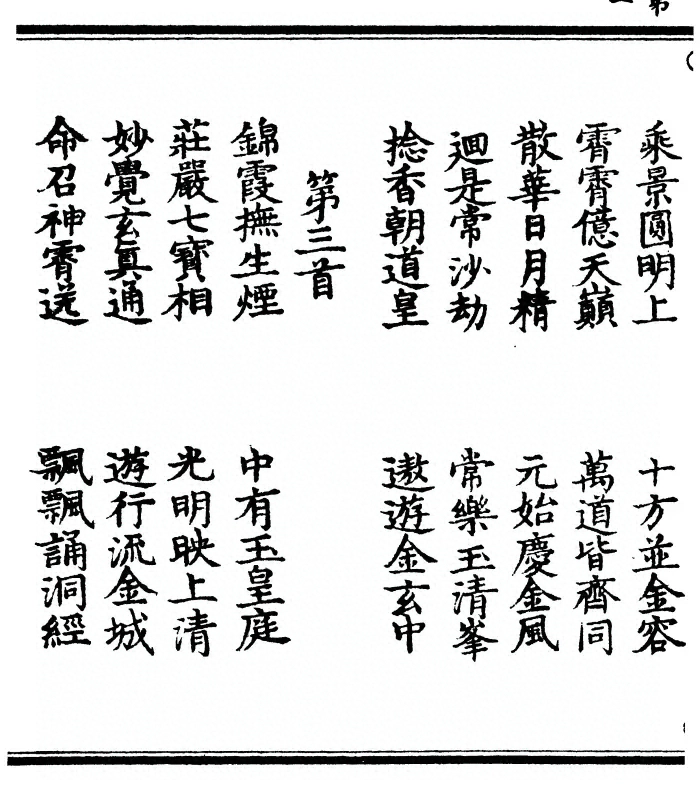 乘景圓明上　十方並金容
霄霄億天巔　萬道皆齊同
散華日月精　元始慶金風
迴是常沙劫　常樂玉清峯
捻香朝道皇　遨遊金玄中
第三首
錦霞撫生煙　中有玉皇庭
莊嚴七寶相　光明映上清
妙覺玄真通　遊行流金城
命召神霄送　飄飄誦洞經